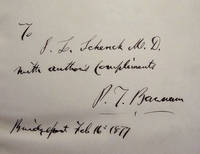 To
S. L. Schenck M. D.
with author's Compliments
P. T. Barnum
Bridgeport Feb 16th 1877